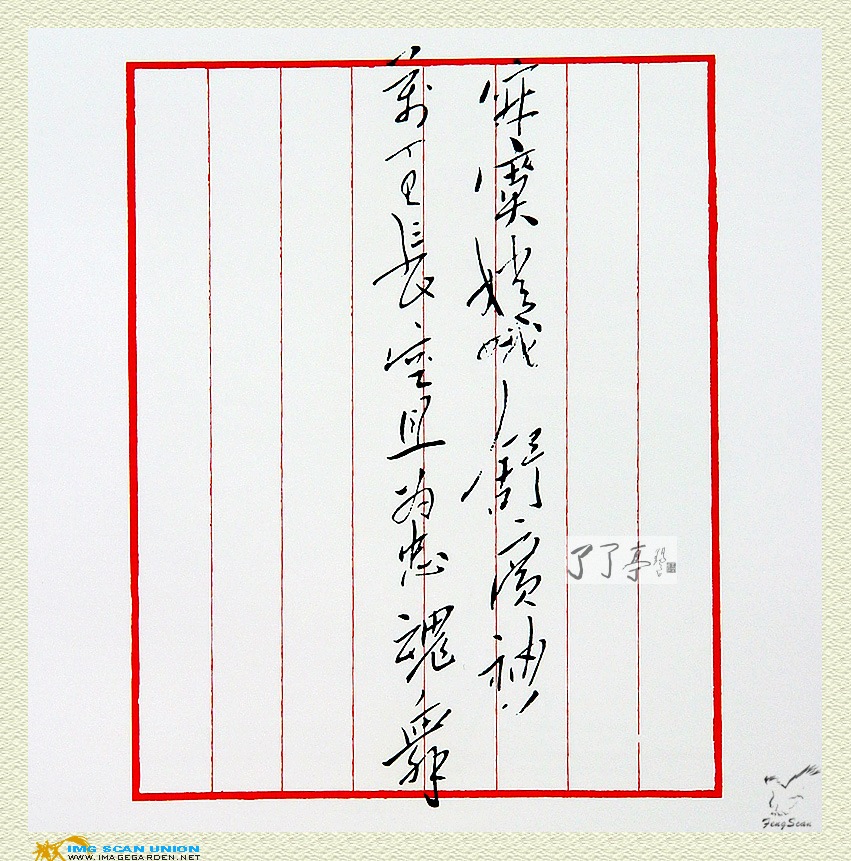 寂寞嫦娥舒廣袖
萬里長空且為忠魂舞
了了亭
FengScan
IMG SCAN UNION
WWW.IMAGEGARDEN.NET